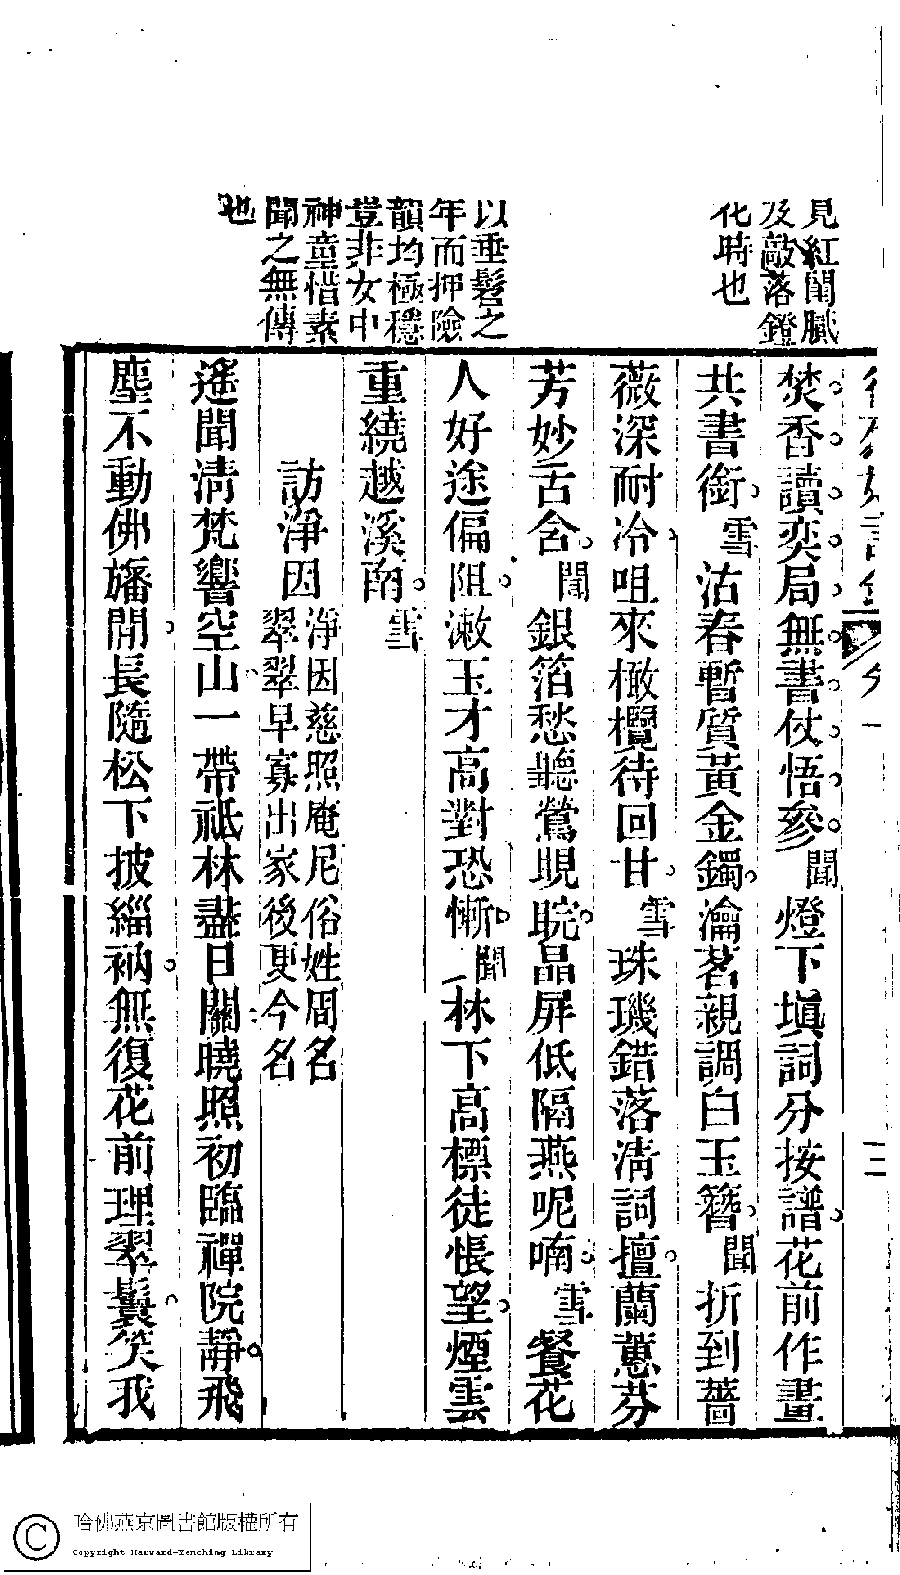 見紅閨膩
及敲落鐙
化時也
以垂髫之
年而押險
韻均極穩
豈非女中
神童惜素
聞之無傳
也
焚香讀奕局無書仗悟參。聞燈下塡詞分按譜。花前作畫
共書銜。雪沽春暫質黃金鐲。瀹茗親調白玉簪。聞折到薔
薇深耐冷。咀來橄欖待回甘。雪珠璣錯落清詞擅。蘭蕙芬
芳妙舌含。聞銀箔愁聽鶯睍睆。晶屏低隔燕呢喃。雪餐花
人好途偏阻。漱玉才高對恐慚。聞林下高標徒悵望。煙雲
重繞越溪南。雪
訪淨因
淨因慈照庵尼俗姓周名
翠翠早寡出家後更今名
遙聞清梵響空山。一帶祗林盡日關。曉照初臨禪院靜。飛
塵不動佛旛閒。長隨松下披緇衲。無復花前理翠鬟。笑我
二
哈佛燕京圖書館版權所有
Copyright Harvard-Yenching Library